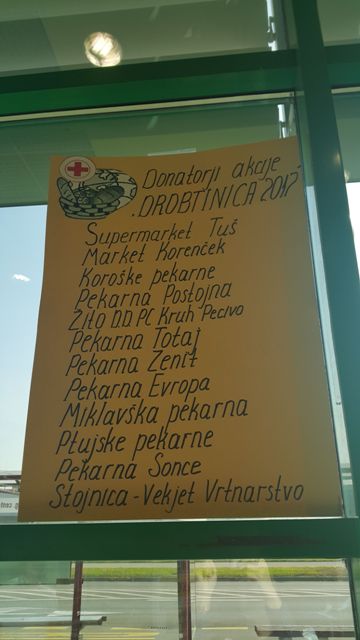 Donatorji akcije
"DROBTINICA 2017"
Supermarket Tuš
Market Korenček
Koroške pekarne
Pekarna Postojna
ŽITO D.D. PC Kruh Pecivo
Pekarna Totaj
Pekarna Zenit
Pekarna Evropa
Miklavška pekarna
Ptujske pekarne
Pekarna Sonce
Stojnica - Vekjet Vrtnarstvo